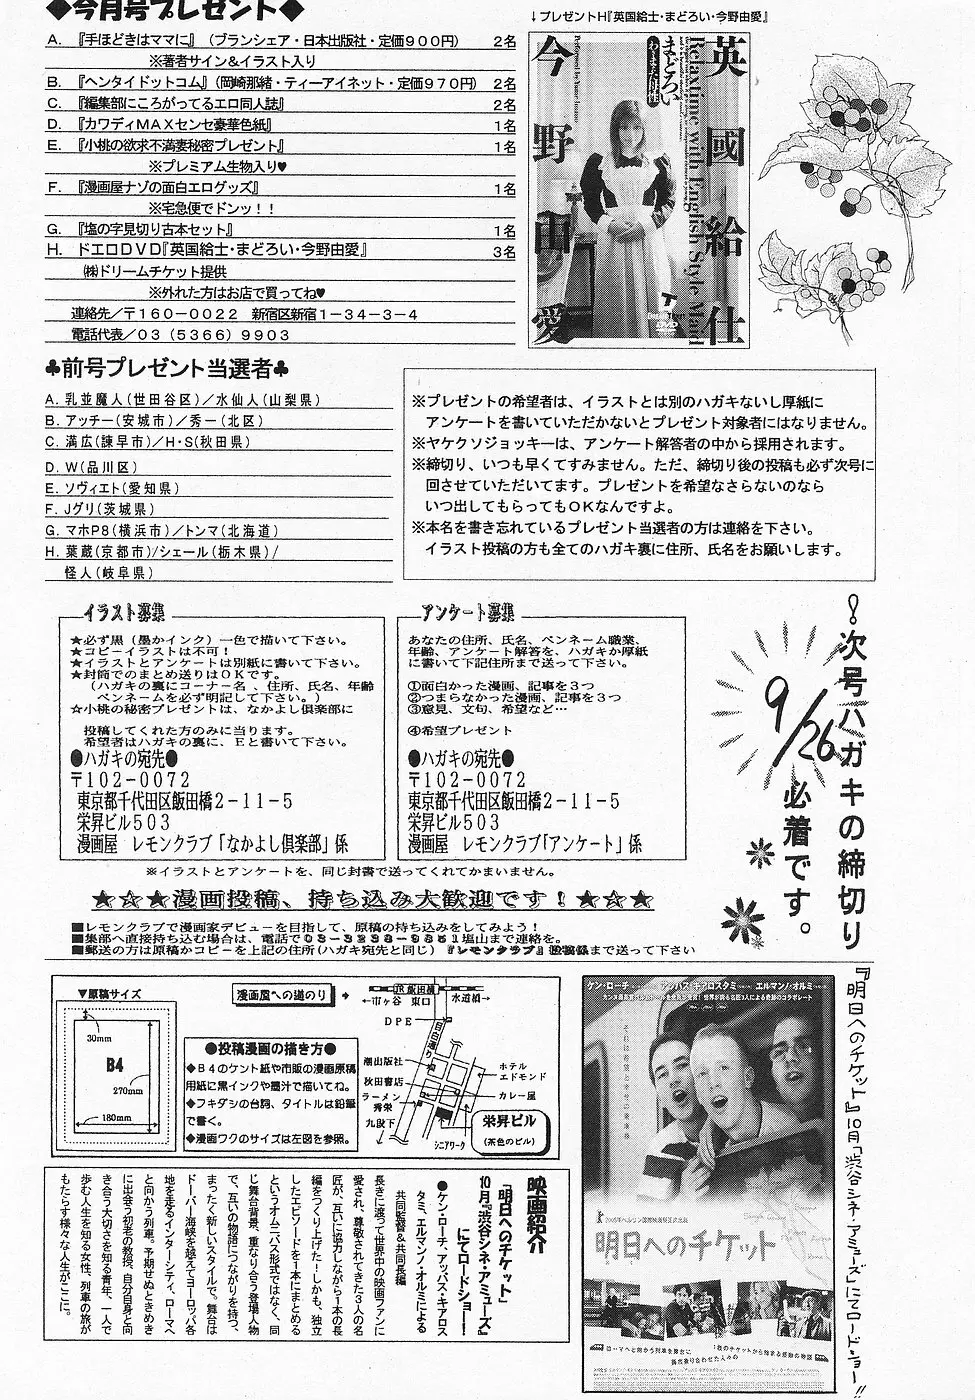 ◆今月号プレゼント◆
A. 『手ほどきはママに』（ブランシェア・日本出版社・定価900円） 2名
※著者サイン&イラスト入り
B. 『ヘンタイドットコム』（岡崎那緒・ティーアイネット・定価970円） 2名
C. 『編集部にころがってるエロ同人誌』 2名
D. 『カワディMAXセンセ豪華色紙』 1名
E. 『小桃の欲求不満妻秘密プレゼント』 1名
※プレミアム生物入り♥
F. 『漫画屋ナゾの面白エログッズ』 1名
※宅急便でドンッ！！
G. 『塩の字見切り古本セット』 1名
H. ドエロDVD『英国給士・まどろい・今野由愛』 3名
㈱ドリームチケット提供
※外れた方はお店で買ってね♥
連絡先／〒160-0022 新宿区新宿1-34-3-4
電話代表／03（5366）9903
↓プレゼントH『英国給士・まどろい・今野由愛』
英國給仕
Relaxtime with English Style Maid
まどろい
今野由愛
♣前号プレゼント当選者♣
A. 乳並魔人(世田谷区)／水仙人(山梨県)
B. アッチー(安城市)／秀一(北区)
C. 満広(諫早市)／H・S(秋田県)
D. W(品川区)
E. ソヴィエト(愛知県)
F. Jグリ(茨城県)
G. マホP8(横浜市)／トンマ(北海道)
H. 葉蔵(京都市)/シェール(栃木県)/
怪人(岐阜県)
※プレゼントの希望者は、イラストとは別のハガキないし厚紙に
アンケートを書いていただかないとプレゼント対象者にはなりません。
※ヤケクソジョッキーは、アンケート解答者の中から採用されます。
※締切り、いつも早くてすみません。ただ、締切り後の投稿も必ず次号に
回させていただいてます。プレゼントを希望なさらないのなら
いつ出してもらってもOKなんですよ。
※本名を書き忘れているプレゼント当選者の方は連絡を下さい。
イラスト投稿の方も全てのハガキ裏に住所、氏名をお願いします。
イラスト募集
★必ず黒（墨かインク）一色で描いて下さい。
★コピーイラストは不可！
★イラストとアンケートは別紙に書いて下さい。
★封筒でのまとめ送りはOKです。
（ハガキの裏にコーナー名、住所、氏名、年齢
ペンネームを必ず明記して下さい。）
☆小桃の秘密プレゼントは、なかよし倶楽部に
投稿してくれた方のみに当ります。
希望者はハガキの裏に、Eと書いて下さい。
●ハガキの宛先●
〒102-0072
東京都千代田区飯田橋2-11-5
栄昇ビル503
漫画屋 レモンクラブ「なかよし倶楽部」係
アンケート募集
あなたの住所、氏名、ペンネーム職業、
年齢、アンケート解答を、ハガキか厚紙
に書いて下記住所まで送って下さい。
①面白かった漫画、記事を3つ
②つまらなかった漫画、記事を3つ
③意見、文句、希望など…
④希望プレゼント
●ハガキの宛先●
〒102-0072
東京都千代田区飯田橋2-11-5
栄昇ビル503
漫画屋 レモンクラブ「アンケート」係
！次号ハガキの締切り
9/26
必着です。
※イラストとアンケートを、同じ封書で送ってくれてかまいません。
★☆★漫画投稿、持ち込み大歓迎です！★☆★
■レモンクラブで漫画家デビューを目指して、原稿の持ち込みをしてみよう！
■集部へ直接持ち込む場合は、電話で03-3238-9851塩山まで連絡を。
■郵送の方は原稿かコピーを上記の住所(ハガキ宛先と同じ)『レモンクラブ』投稿係まで送って下さい
▼原稿サイズ
30mm
B4
270mm
180mm
漫画屋への道のり
●投稿漫画の描き方●
◆B4のケント紙や市販の漫画原稿
用紙に黒インクや墨汁で描いてね。
◆フキダシの台詞、タイトルは鉛筆
で書く。
◆漫画ワクのサイズは左図を参照。
JR飯田橋
←市ヶ谷 東口 水道橋→
DPE
目白通り
潮出版社
秋田書店
ラーメン
秀栄
九段下
ホテル
エドモンド
カレー屋
シニアワーク
栄昇ビル
(茶色のビル)
映画紹介
『明日へのチケット』
10月『渋谷シネ・アミューズ』
にてロードショー！
●ケン・ローチ、アッバス・キアロス
タミ、エルマンノ・オルミによる
共同監督&共同長編
長きに渡って世界中の映画ファンに
愛され、尊敬されてきた3人の名
匠が、互いに協力しながら1本の長
編をつくり上げた！しかも、独立
したエピソードを1本にまとめる
というオムニバス形式ではなく、同
じ舞台背景、重なり合う登場人物
で、互いの物語につながりを持つ、
まったく新しいスタイルで。舞台は
ドーバー海峡を越えてヨーロッパ各
地を走るインターシティ、ローマへ
と向かう列車。予期せぬときめき
に出会う初老の教授、自分自身と向
き合う大切さを知る青年、一人で
歩む人生を知る女性、列車の旅が
もたらす様々な人生がここに。
ケン・ローチ アッバス・キアロスタミ エルマンノ・オルミ
明日へのチケット
『明日へのチケット』10月『渋谷シネ・アミューズ』にてロードショー!!